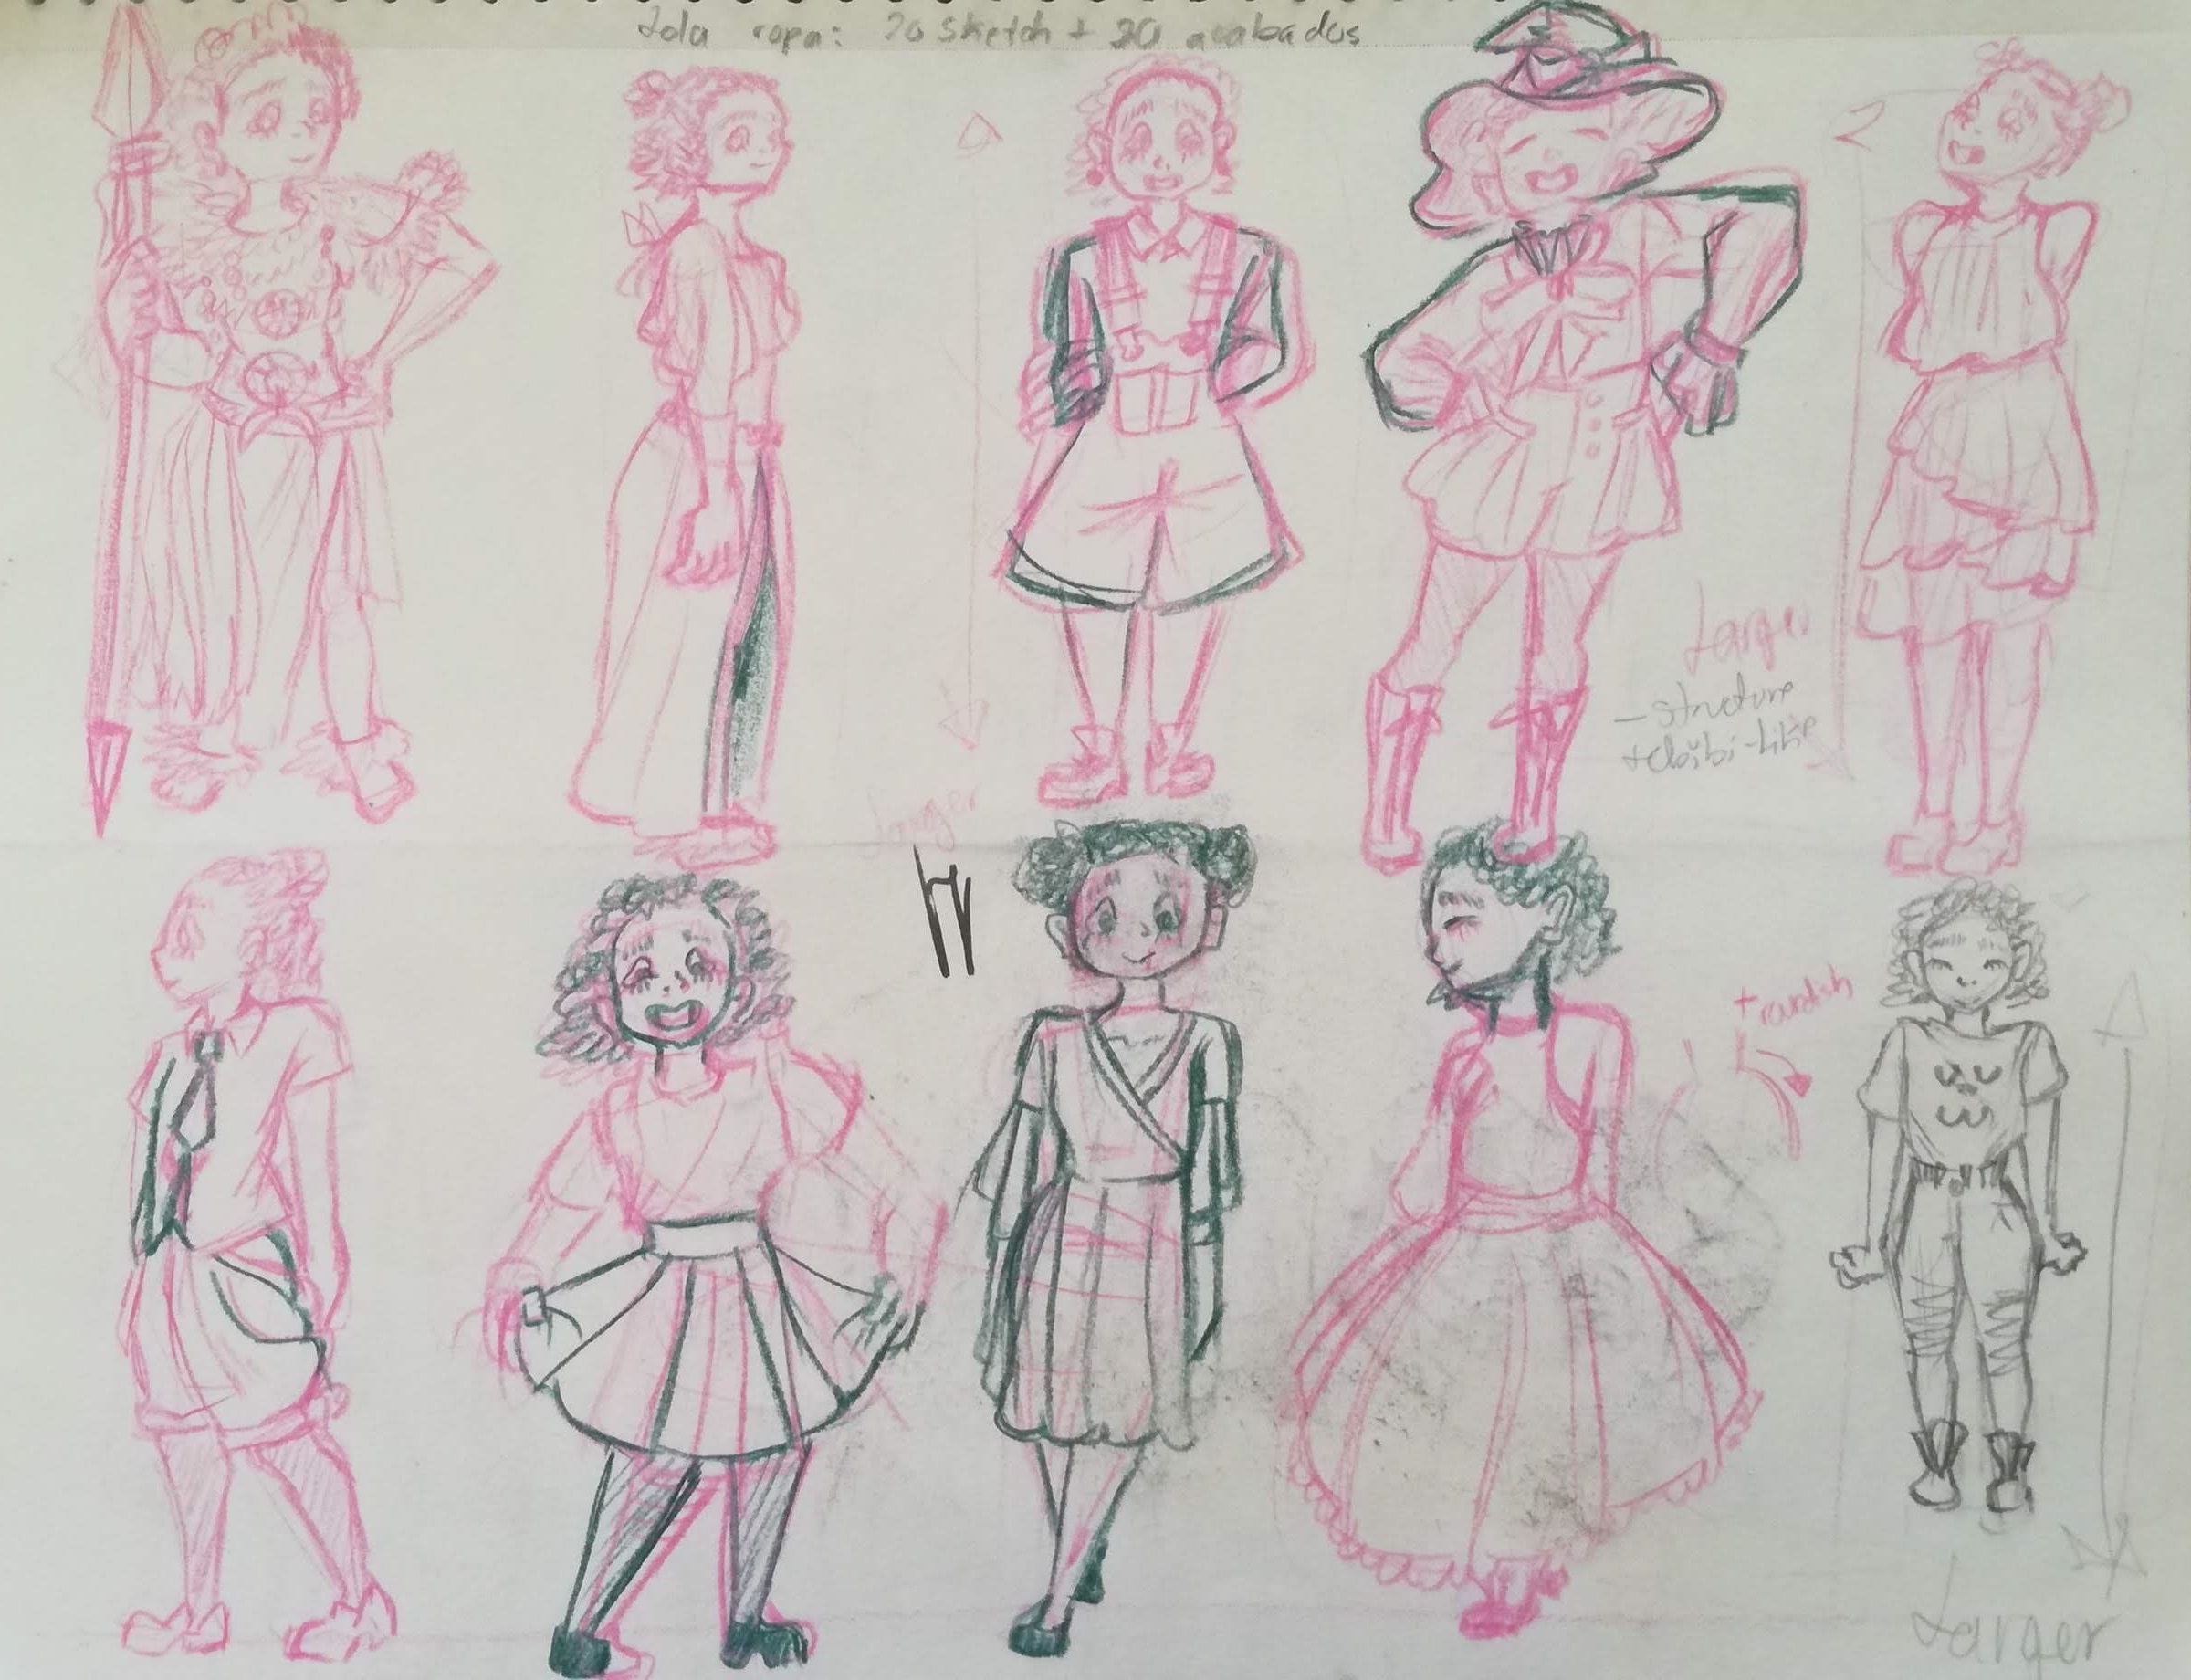 Lola ropa: 20 sketch + 20 acabados
Larger
- structure
+ chibi-like
Larger
+ roundish
Larger